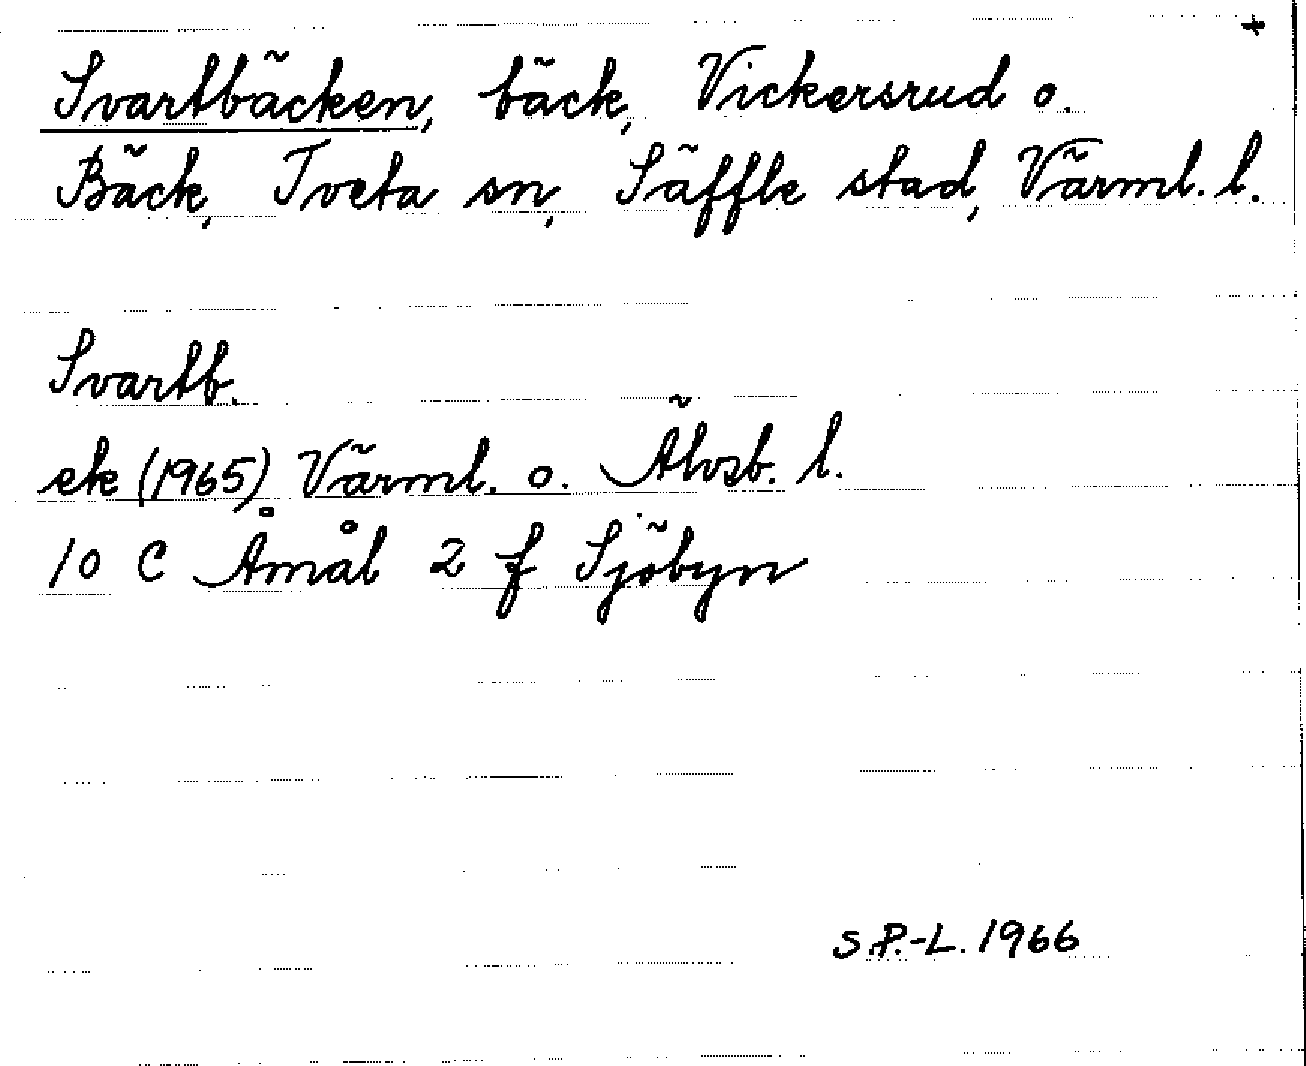 +
Svartbäcken, bäck, Vickersrud o.
Bäck, Tveta sn, Säffle stad, Värml. l.
Svartb.
ek (1965) Värml. o. Älvsb. l.
10 C Åmål 2 f Sjöbyn
S.P.-L. 1966